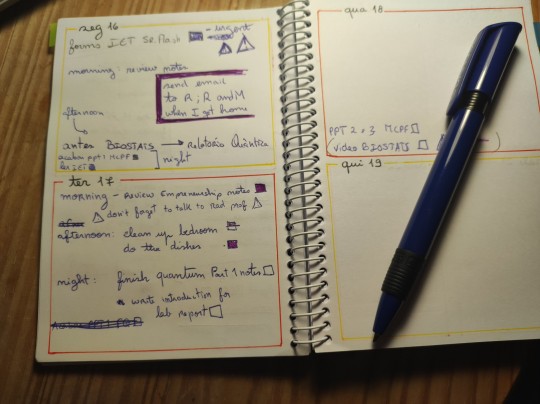 seg 16
forms IET SR. Flash urgent
morning: review notes
send email
to R; R and M
when I got home
afternoon
antes BIOSTATS → relatório Quântica
acabar ppt1 MCPF
ler IET
night
ter 17
morning - Review Empreneurship notes
don't forget to talk to Rad prof
afternoon: clean up bedroom
do the dishes
night: finish quantum Part 1 notes
write introduction for
lab report
qua 18
PPT 2 e 3 MCPF
(video BIOSTATS
)
qui 19